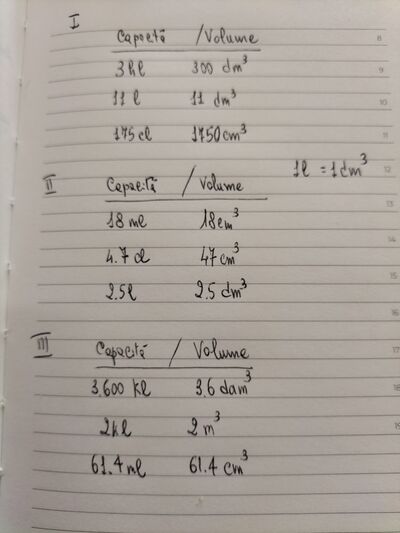 I
Capacità / Volume
3 hl 300 dm³
11 l 11 dm³
175 cl 1750 cm³
1l = 1 dm³
II
Capacità / Volume
18 ml 18 cm³
4.7 cl 47 cm³
2.5 l 2.5 dm³
III
Capacità / Volume
3.600 kl 3.6 dam³
2 kl 2 m³
61.4 ml 61.4 cm³
8
9
10
11
12
13
14
15
16
17
18
19